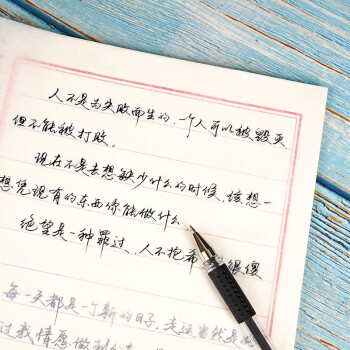 人不是为失败而生的,一个人可以被毁灭
但不能被打败。
现在不是去想缺少什么的时候,该想一
想凭现有的东西你能做什么
绝望是一种罪过,人不抱希 很傻
每一天都是一个新的日子。走运当然是
过我情愿做到